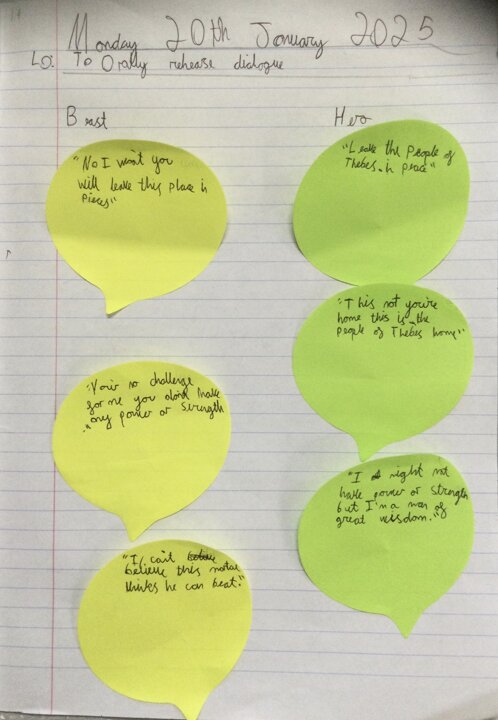 Monday 20th January 2025
LO: To Orally rehease dialogue
Beast
Hero
"Leave the people of
Thebes in peace"
"No I won't you
will leave this place in
pieces"
"This not you're
home this is the
people of Thebes home"
"You're no challenge
for me you dont have
any power or strength
"
"I might not
have power or strength
but I'm a man of
great wisdom."
"I can't
believe this
thinks he can beat."